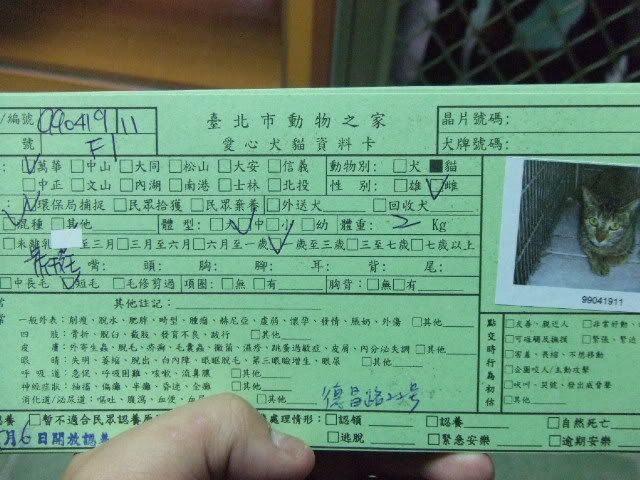 編號 990419/11 臺北市動物之家 晶片號碼:
號 F1 愛心犬貓資料卡 犬牌號碼:
☑萬華 □中山 □大同 □松山 □大安 □信義 動物別: □犬 ■貓
□中正 □文山 □內湖 □南港 □士林 □北投 性 別: □雄 ☑雌
□環保局捕捉 □民眾拾獲 □民眾棄養 □外送犬 □回收犬
混種 □其他 體 型: □大 □中 □小 □幼 體重: 2 Kg
□未離乳 至三月 □三月至六月 □六月至一歲 □一歲至三歲 □三至七歲 □七歲以上
嘴: 頭: 胸: 腳: 耳: 背: 尾:
□中長毛 短毛 □毛修剪過 項圈: □無 □有 胸背: □無 □有
其他註記:
一般外表: 削瘦、脫水、肥胖、畸型、腫瘤、赫尼亞、虛弱、懷孕、發情、脹奶、外傷 □其他
四 肢: 骨折、脫臼、截肢、發育不良、跛行 □其他
皮 膚: 外寄生蟲、脫毛、疥癬、毛囊蟲、黴菌、濕疹、跳蚤過敏症、皮屑、內分泌失調 □其他
眼 睛: 失明、萎縮、脫出、白內障、眼瞼脫毛、第三眼瞼增生、眼屎 □其他
呼吸道: 急促、呼吸困難、咳嗽、流鼻膿 □其他
神經症狀: 抽搐、偏癱、半癱、昏迷、全癱 □其他
消化道/泌尿道: 嘔吐、腹瀉、血便、血尿 □其他
德昌路22号
99041911
點交時行為初估
□友善、親近人 □非常好動、
□可碰觸及擁抱 □緊張、緊迫
□害羞、畏縮、不想移動
□企圖咬人/主動攻擊
□吠叫、哭號、發出威脅聲
□其他
認養 □暫不適合民眾認養原 處理情形: □認領 □認養 □自然死亡
月6日開放認養 □逃脫 □緊急安樂 □逾期安樂